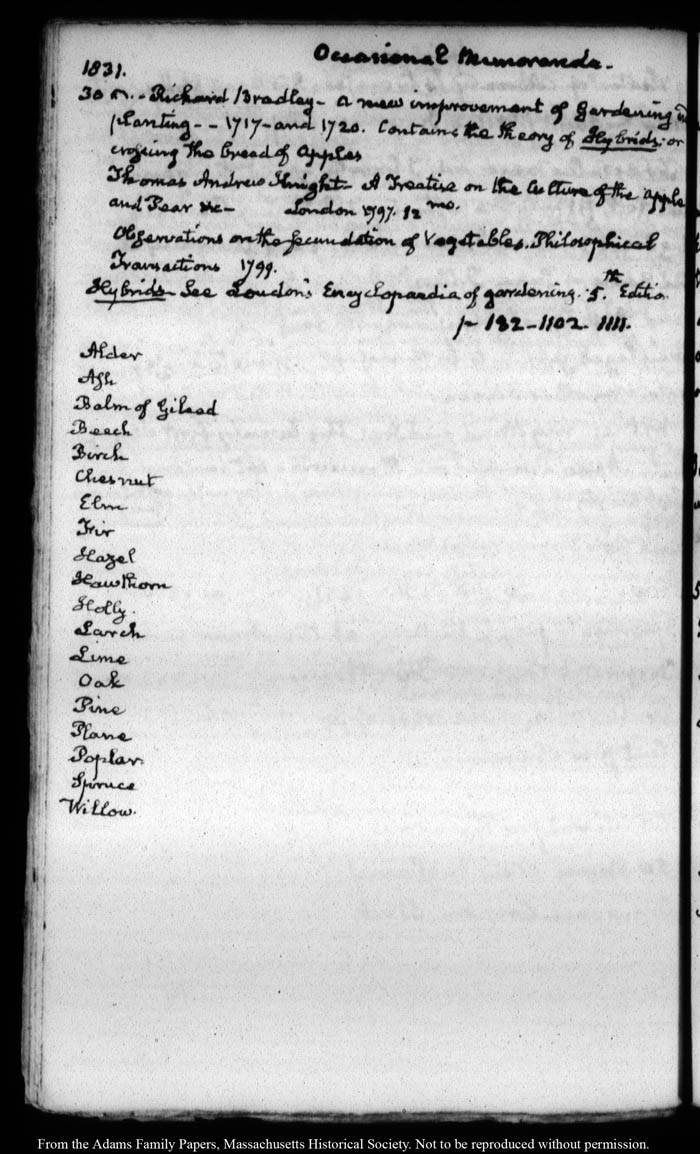 Occasional Memoranda.
1831.
30 Richard Bradley - A new improvement of Gardening
planting - - 1717 - and 1720. Contains the theory of Hybrids or
crossing the breed of Apples
Thomas Andrew Knight - A Treatise on the Culture of the Apple
and Pear &c - London 1797. 12mo.
Observations on the fecundation of Vegetables. Philosophical
Transactions 1799.
Hybrids - See Loudon's Encyclopaedia of gardening. 5.th Editio.
p 132 - 1102. 1111.
Alder
Ash
Balm of Gilead
Beech
Birch
Chesnut
Elm
Fir
Hazel
Hawthorn
Holly.
Larch
Lime
Oak
Pine
Plane
Poplar
Spruce
Willow.
From the Adams Family Papers, Massachusetts Historical Society. Not to be reproduced without permission.